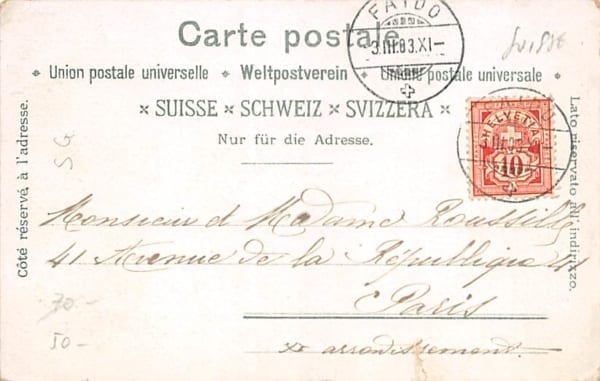 Carte postale.
FAIDO
3.III.03.XI
Suisse
Union postale universelle Weltpostverein Unione postale universale
SUISSE SCHWEIZ SVIZZERA
Nur für die Adresse.
Côté réservé à l'adresse.
Lato riservato all'indirizzo.
HELVETIA
10
SG
Monsieur et Madame Roussilly
41 Avenue de la République 41
Paris
XIe arrondissement.
70-
50-